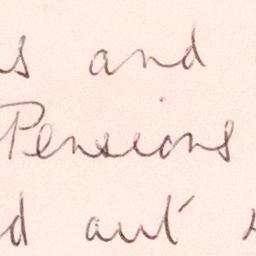 s and
Pensions
d aut